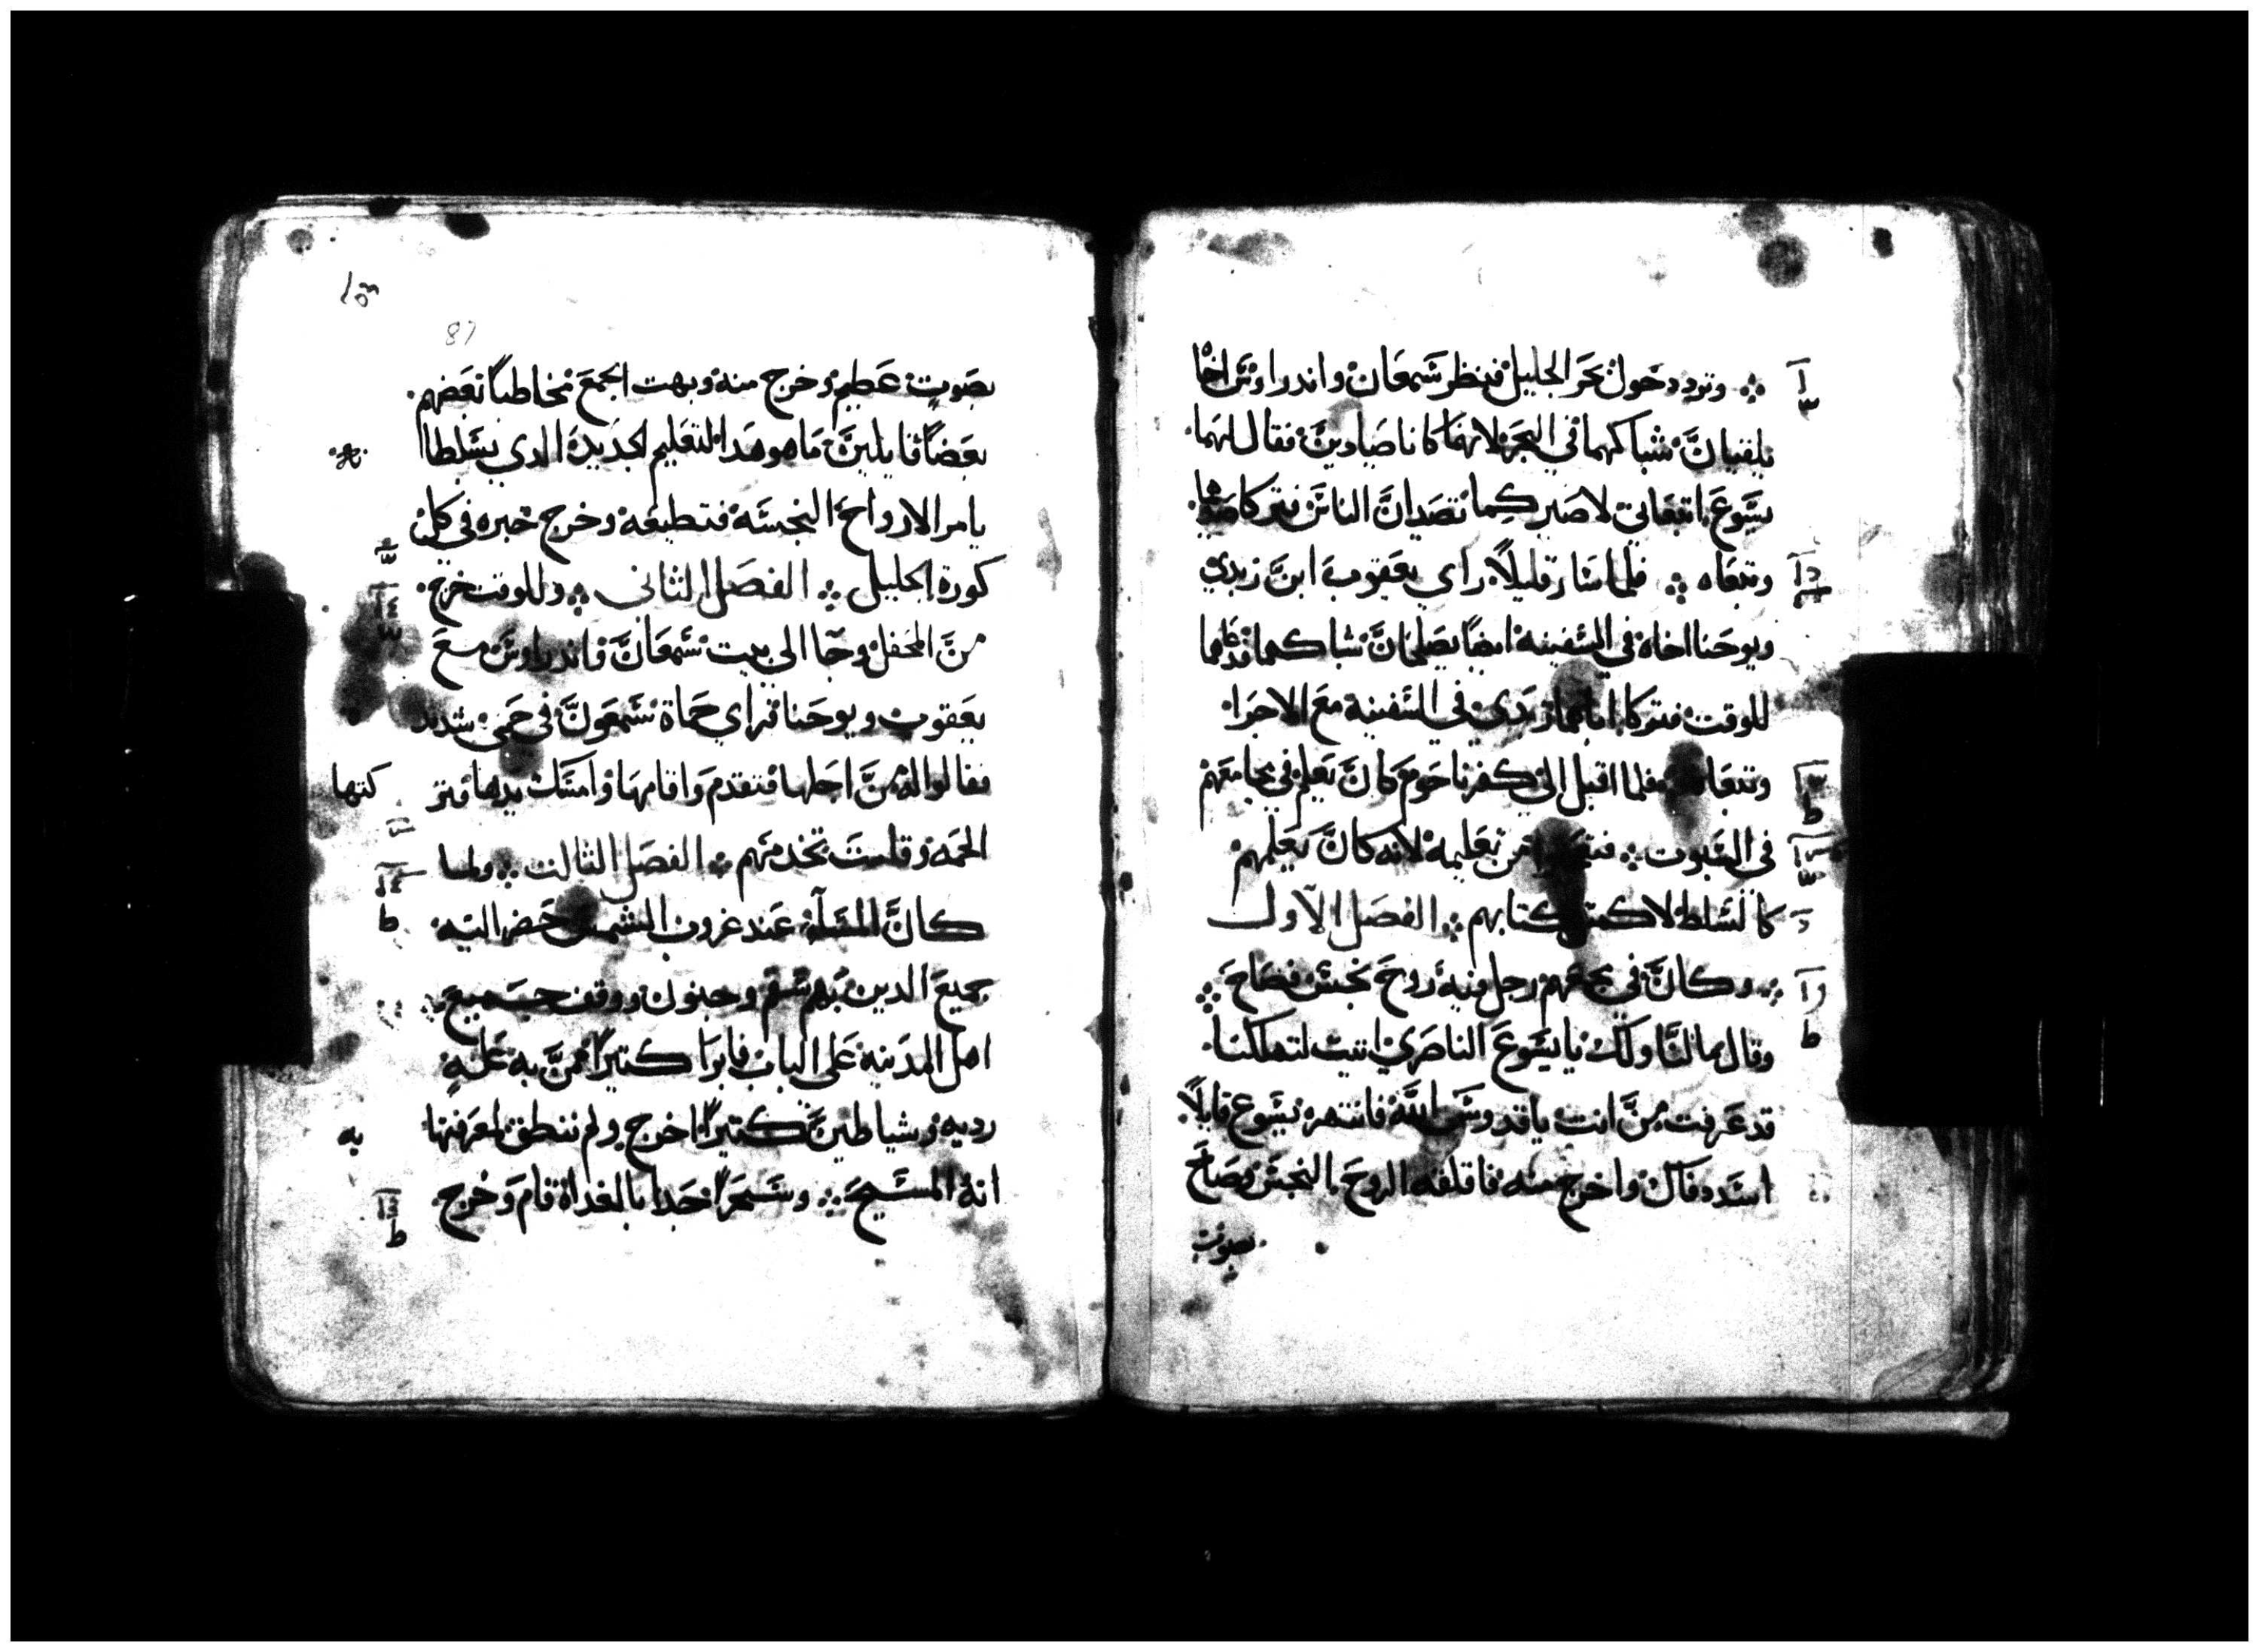 وتردد حول بحر الجليل فنظر شمعان واندراوس اخا
يلقيان شباكهما في البحر لانهما كانا صيادين فقال لهما
يسوع اتبعاني لاصيركما تصيدان الناس فتركا
وتبعاه فلما سار قليلاً راي يعقوب ابن زبدي
ويوحنا اخاه في السفينه ايضاً يصلحان شباكهما فدعاهما
للوقت فتركا اباهما زبدي في السفينه مع الاجرا
وتبعاه فلما اقبل الى كفرناحوم كان يعلم في مجامعهم
في السبوت من تعليمه لانه كان يعلمهم
كالمسلط لا كتابهم الفصل الاول
وكان في مجمعهم رجل فيه روح نجس فصاح
وقال مالنا ولك يا يسوع الناصري اتيت لتهلكنا
قد عرفت من انت يا قدوس الله فانتهره يسوع قايلاً
اسدد فاك واخرج منه فاقلقه الروح النجس وصاح
بصوت
87
بصوت عظيم وخرج منه وبهت الجمع مخاطباً بعضهم
بعضاً قايلين ما هو هدا التعليم الجديد الدي بسلطا
يامر الارواح النجسه فتطيعه وخرج خبره في كل
كورة الجليل الفصل الثاني وللوقت خرج
من المحفل وجا الى بيت شمعان واندراوس مع
يعقوب ويوحنا فراي حماة شمعون في حمى شديد
فقالوا له من اجلها فتقدم واقامها وامسك يدها فتر كتها
الحمه وقامت تخدمهم الفصل الثالت ولما
كان المسآ عند غروب الشمس حضر اليه
جميع الدين بهم سقم وجنون ووقف جميع
اهل المدينه على الباب فابرا كتيراً ممن به عله
رديه وشياطين كتيراً اخرج ولم ننطق لمعرفتها به
انه المسيح وسحراً جدا بالغداة قام وخرج